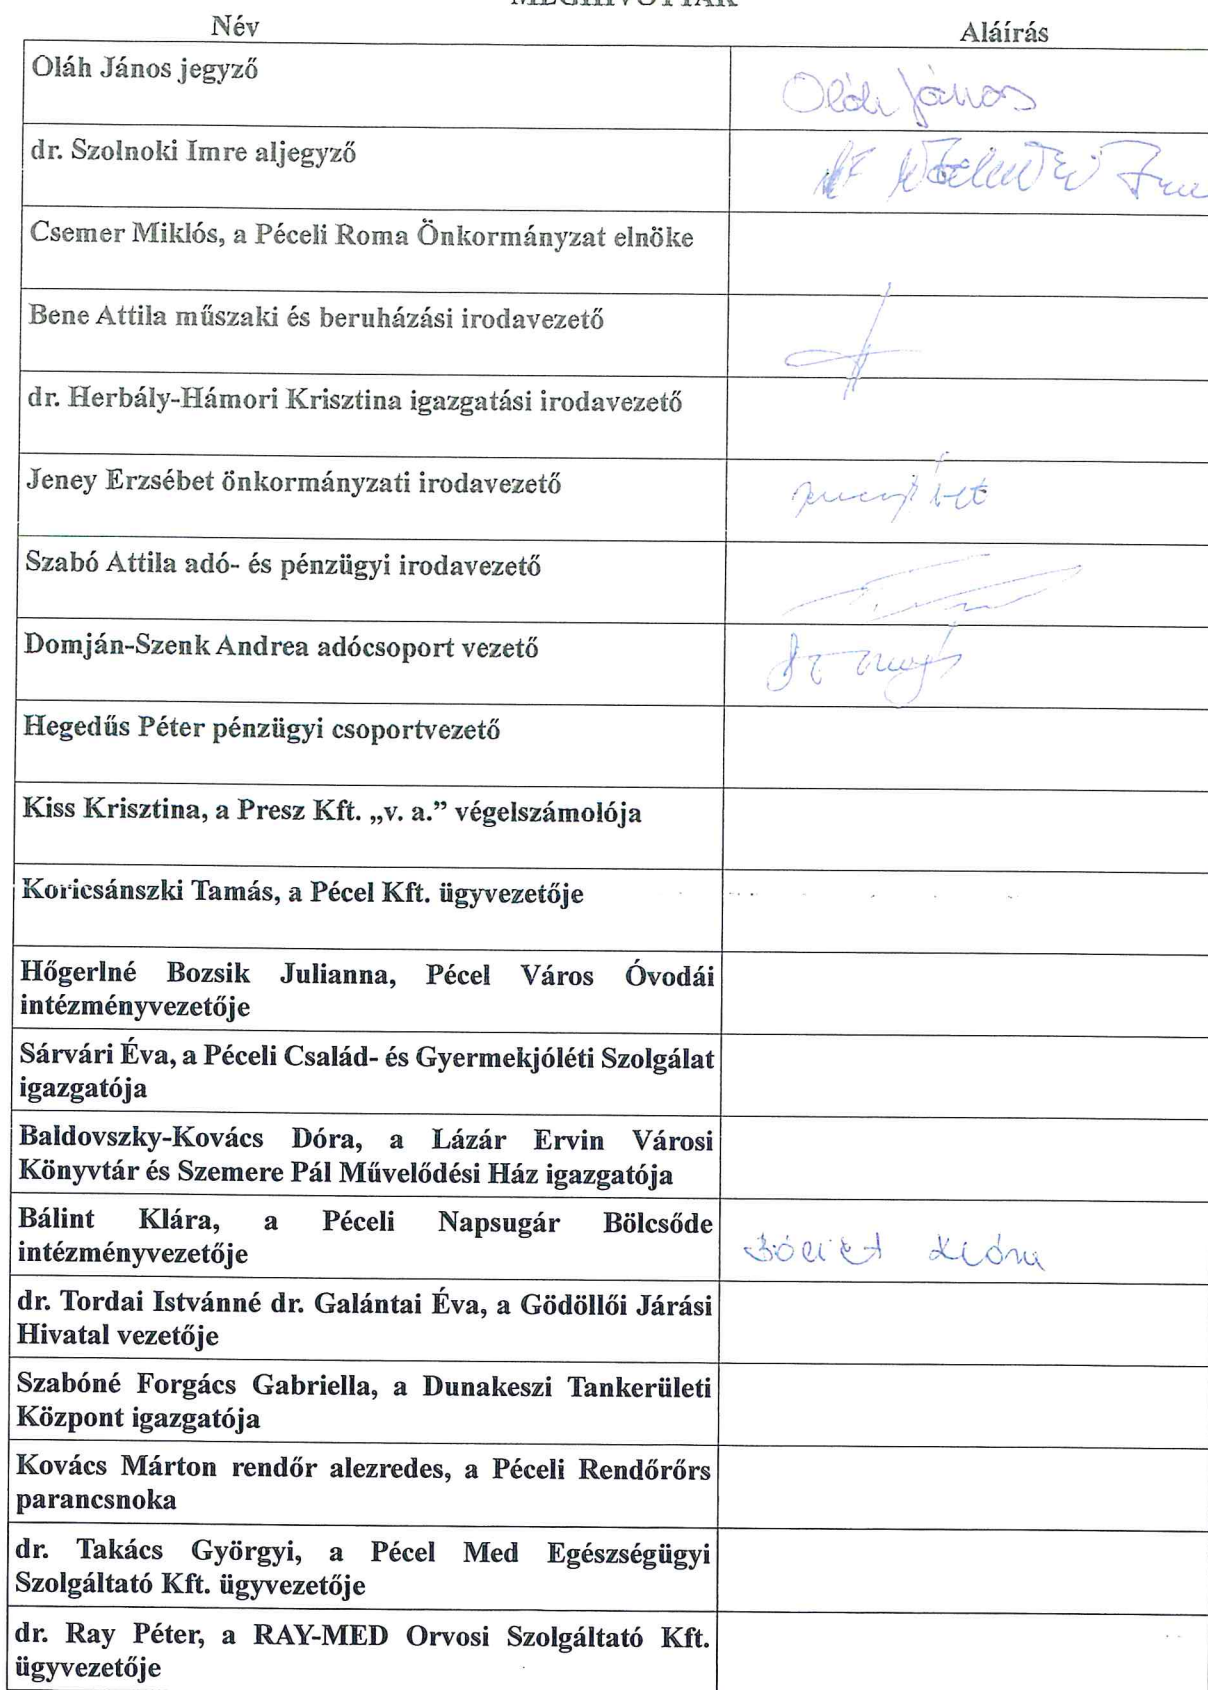 MEGHÍVOTTAK
Név Aláírás
Oláh János jegyző Oláh János
dr. Szolnoki Imre aljegyző
Csemer Miklós, a Péceli Roma Önkormányzat elnöke
Bene Attila műszaki és beruházási irodavezető
dr. Herbály-Hámori Krisztina igazgatási irodavezető
Jeney Erzsébet önkormányzati irodavezető
Szabó Attila adó- és pénzügyi irodavezető
Domján-Szenk Andrea adócsoport vezető
Hegedűs Péter pénzügyi csoportvezető
Kiss Krisztina, a Presz Kft. „v. a.” végelszámolója
Koricsánszki Tamás, a Pécel Kft. ügyvezetője
Hőgerlné Bozsik Julianna, Pécel Város Óvodái
intézményvezetője
Sárvári Éva, a Péceli Család- és Gyermekjóléti Szolgálat
igazgatója
Baldovszky-Kovács Dóra, a Lázár Ervin Városi
Könyvtár és Szemere Pál Művelődési Ház igazgatója
Bálint Klára, a Péceli Napsugár Bölcsőde
intézményvezetője Bálint Klára
dr. Tordai Istvánné dr. Galántai Éva, a Gödöllői Járási
Hivatal vezetője
Szabóné Forgács Gabriella, a Dunakeszi Tankerületi
Központ igazgatója
Kovács Márton rendőr alezredes, a Péceli Rendőrőrs
parancsnoka
dr. Takács Györgyi, a Pécel Med Egészségügyi
Szolgáltató Kft. ügyvezetője
dr. Ray Péter, a RAY-MED Orvosi Szolgáltató Kft.
ügyvezetője